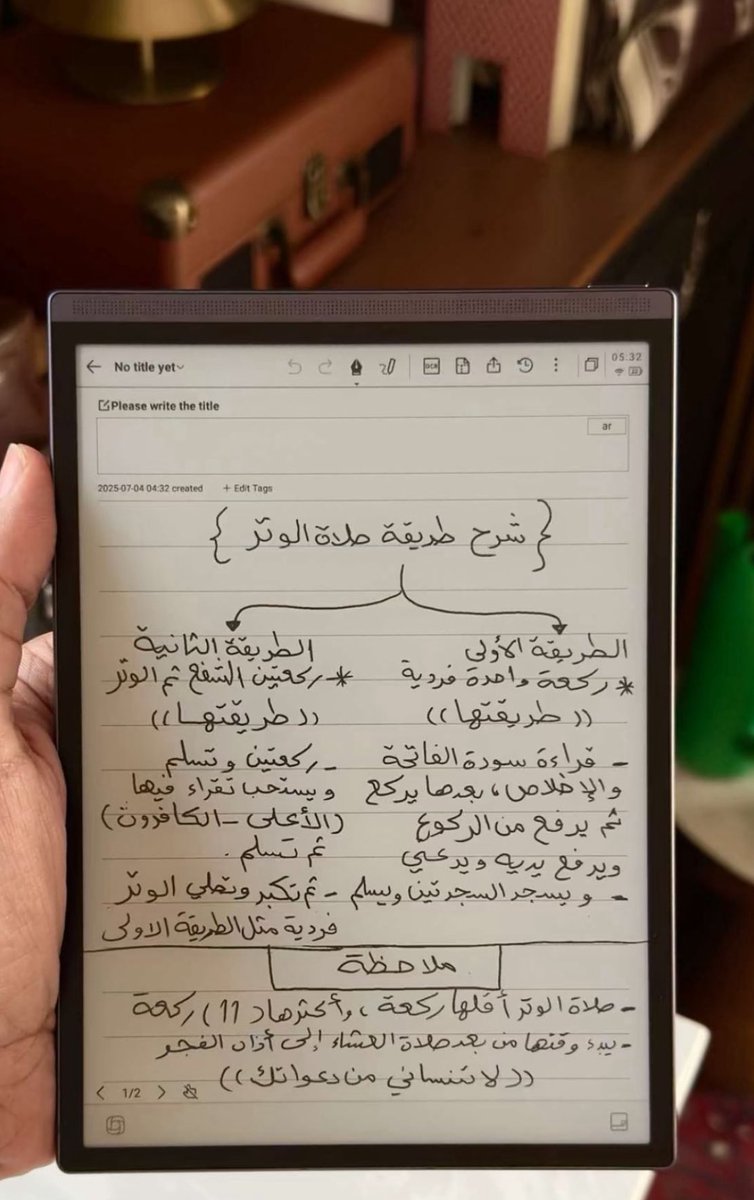 No title yet
OCR
05:32
Please write the title
ar
2025-07-04 04:32 created
+ Edit Tags
{ شرح طريقة صلاة الوتر }
الطريقة الأولى
* ركعة واحدة فردية
(( طريقتها ))
- قراءة سورة الفاتحة
والإخلاص، بعدها يركع
ثم يرفع من الركوع
ويرفع يديه ويدعي
- ويسجد السجدتين ويسلم
الطريقة الثانية
* ركعتين الشفع ثم الوتر
(( طريقتها ))
- ركعتين وتسلم
ويستحب تقراء فيها
(الأعلى - الكافرون)
ثم تسلم .
- ثم تكبر وتصلي الوتر
فردية مثل الطريقة الاولى
ملاحظة
- صلاة الوتر أقلها ركعة ، وأكثرها د 11 ) ركعة
- يبدء وقتها من بعد صلاة العشاء إلى أذان الفجر
(( لا تنساني من دعواتك ))
1/2